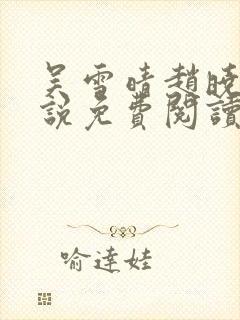 吴雪晴趙曉
說免費閱讀
喻達娃